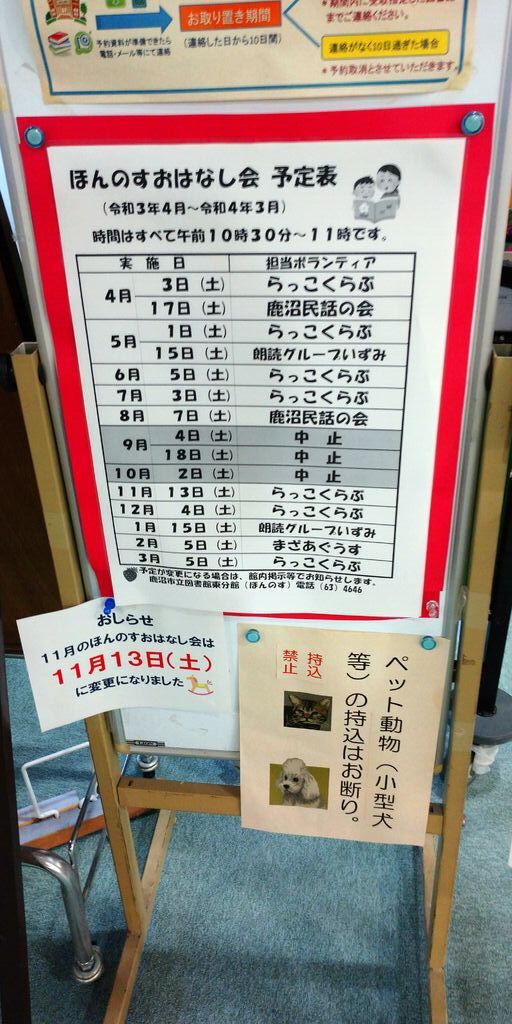 お取り置き期間
(連絡した日から10日間)
予約資料が準備できたら
電話・メール等にて連絡
までご連絡ください。
連絡がなく10日過ぎた場合
*予約取消とさせていただきます。
ほんのすおはなし会 予定表
(令和3年4月~令和4年3月)
時間はすべて午前10時30分~11時です。
実施日 担当ボランティア
4月 3日(土) らっこくらぶ
17日(土) 鹿沼民話の会
5月 1日(土) らっこくらぶ
15日(土) 朗読グループいずみ
6月 5日(土) らっこくらぶ
7月 3日(土) らっこくらぶ
8月 7日(土) 鹿沼民話の会
9月 4日(土) 中止
18日(土) 中止
10月 2日(土) 中止
11月 13日(土) らっこくらぶ
12月 4日(土) らっこくらぶ
1月 15日(土) 朗読グループいずみ
2月 5日(土) まざあぐうす
3月 5日(土) らっこくらぶ
予定が変更になる場合は、館内掲示等でお知らせします。
鹿沼市立図書館東分館(ほんのす)電話(63)4646
おしらせ
11月のほんのすおはなし会は
11月13日(土)
に変更になりました
ペット動物(小型犬
等)の持込はお断り。
持込
禁止